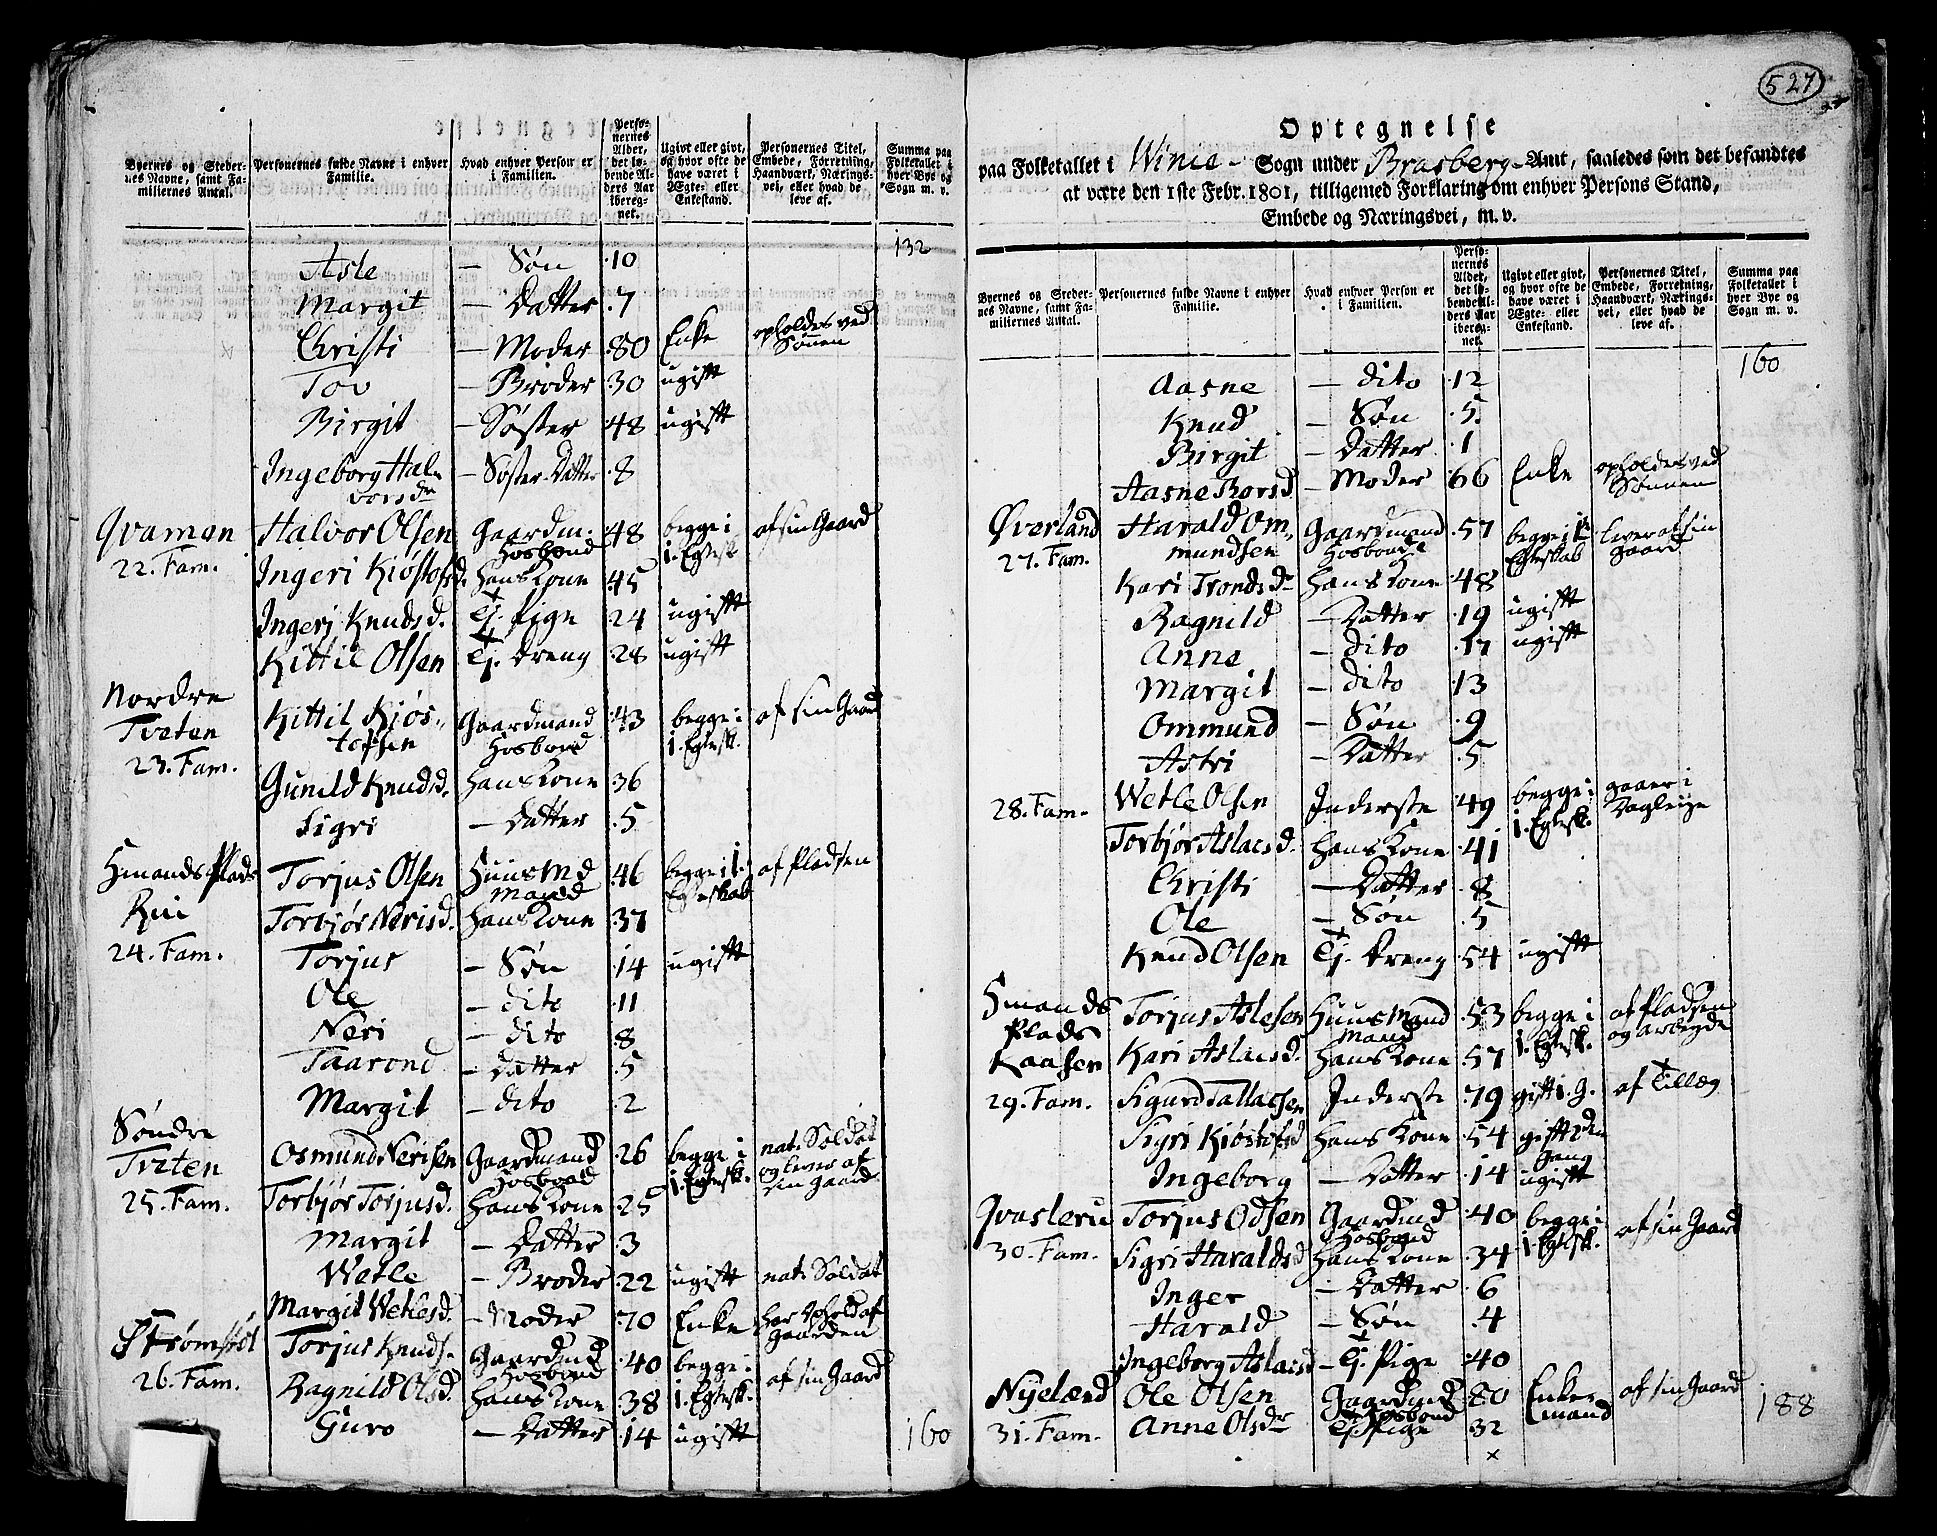 Byernes og Steder-
nes Navne, samt Fa-
miliernes Antal.
Personernes fulde Navne i enhver
Familie.
Hvad enhver Person er
i Familien.
Perso-
nernes
Alder,
det lø-
bende Al-
ders Aar
ibereg-
net.
Ugivt eller givt,
og hvor ofte de
have været i
Ægte- eller
Enkestand.
Personernes Titel,
Embede, Forretning,
Haandværk, Nærings-
vei, eller hvad de
leve af.
Summa paa
Folketallet i
hver Bye og
Sogn m. v.
132
Asle — Søn 10
Margit — Datter 7
Christi — Moder 80 Enke opholdes ved
Sønnen
Tov — Broder 30 ugift
Birgit — Søster 48 ugift
Ingeborg Hal-
vorsdr — Søster Datter 8
Qvamen Halvor Olsen Gaardm. 48 begge i af sin Gaard
22. Fam. Hosbond 1. Egtesk.
Ingeri Kiøstofsd. Hans Kone 45
Ingerj Knudsd. Tj. Pige 24 ugift
Kittil Olsen Tj. Dreng 28 ugift
Nordre
Tveten Kittil Kiøs-
tofsen Gaardmand 43 begge i af sin Gaard
23. Fam. Hosbond 1. Egtesk.
Gunild Knudsd. Hans Kone 36
Sigri — Datter 5
Hmands Plads Torjus Olsen Huusmd 46 begge i 1. af Pladsen
Rui mand Egteskab
Torbjør Nerisd. Hans Kone 37
24. Fam. Torjus — Søn 14 ugift
Ole — dito 11
Neri — dito 8
Taarond — Datter 5
Margit — dito 2
Søndre
Tveten Osmund Nerisen Gaardmand 26 begge i nat. Soldat
Hosbond 1. Egtesk. og lever af
den gaard
25. Fam. Torbjør Torjusd. Hans Kone 25
Margit — Datter 3
Wetle — Broder 22 ugift nat. Soldat
Margit Wetlesd. — Moder 70 Enke har Ophold af
Gaarden
Strømsødt Torjus Knuds. Gaardmd 40 begge i af sin Gaard
26. Fam. Hosbond 1. Egtesk.
Ragnild Olsd. Hans Kone 38
Guro — Datter 14 ugift
160
527
Optegnelse
paa Folketallet i Winie Sogn under Brasberg Amt, saaledes som det befandtes
at være den 1ste Febr. 1801, tilligemed Forklaring om enhver Persons Stand,
Embede og Næringsvei, m. v.
Byernes og Steder-
nes Navne, samt Fa-
miliernes Antal.
Personernes fulde Navne i enhver
Familie.
Hvad enhver Person er
i Familien.
Perso-
nernes
Alder,
det lø-
bende Al-
ders Aar
ibereg-
net.
Ugivt eller givt,
og hvor ofte de
have været i
Ægte- eller
Enkestand.
Personernes Titel,
Embede, Forretning,
Haandværk, Nærings-
vei, eller hvad de
leve af.
Summa paa
Folketallet i
hver Bye og
Sogn m. v.
160
Aasne — dito 12
Knud — Søn 5
Birgit — Datter 1
Aasne Torsd. — Moder 66 Enke opholdes ved
Sønnen
Øverland Harald Om-
mundsen Gaardmand 57 begge i 1. lever af sin
27. Fam. Hosbonde Egteskab gaard
Kari Trondsdr Hans Kone 48
Ragnild — Datter 19 ugift
Anne — dito 17 ugift
Margit — dito 13
Ommund — Søn 9
Astri — Datter 5
28. Fam. Wetle Olsen Inderste 49 begge i gaaer i
1. Egtesk. Dagleije
Torbjør Aslacsd. Hans Kone 41
Christi — Datter 8
Ole — Søn 5
Knud Olsen Tj. Dreng 54 ugift
Hmands
Plads Torjus Aslesen Huusmand 53 begge i af Pladsen
mand 1. Egtesk. og arbeyde
Kaasen Kari Aslacsd. Hans Kone 57
29. Fam. Sigurd Tallacsen Inderste 79 gift 1. G. af Tillæg
Sigri Kiøstofsd Hans Kone 54 gift 2den
Gang
Ingeborg — Datter 14 ugift
Qvasleru Torjus Odsen Gaardmd 40 begge i af sin Gaard
30. Fam. Hosbond 1. Egtesk.
Sigri Haraldsd Hans Kone 34
Inger — Datter 6
Harald — Søn 4
Ingeborg Aslacsd — Tj. Pige 40
Nyelænd Ole Olsen Gaardmd 80 Enke- af sin Gaard
Hosbond mand
31. Fam. Anne Olsdr Tj. Pige 32
188